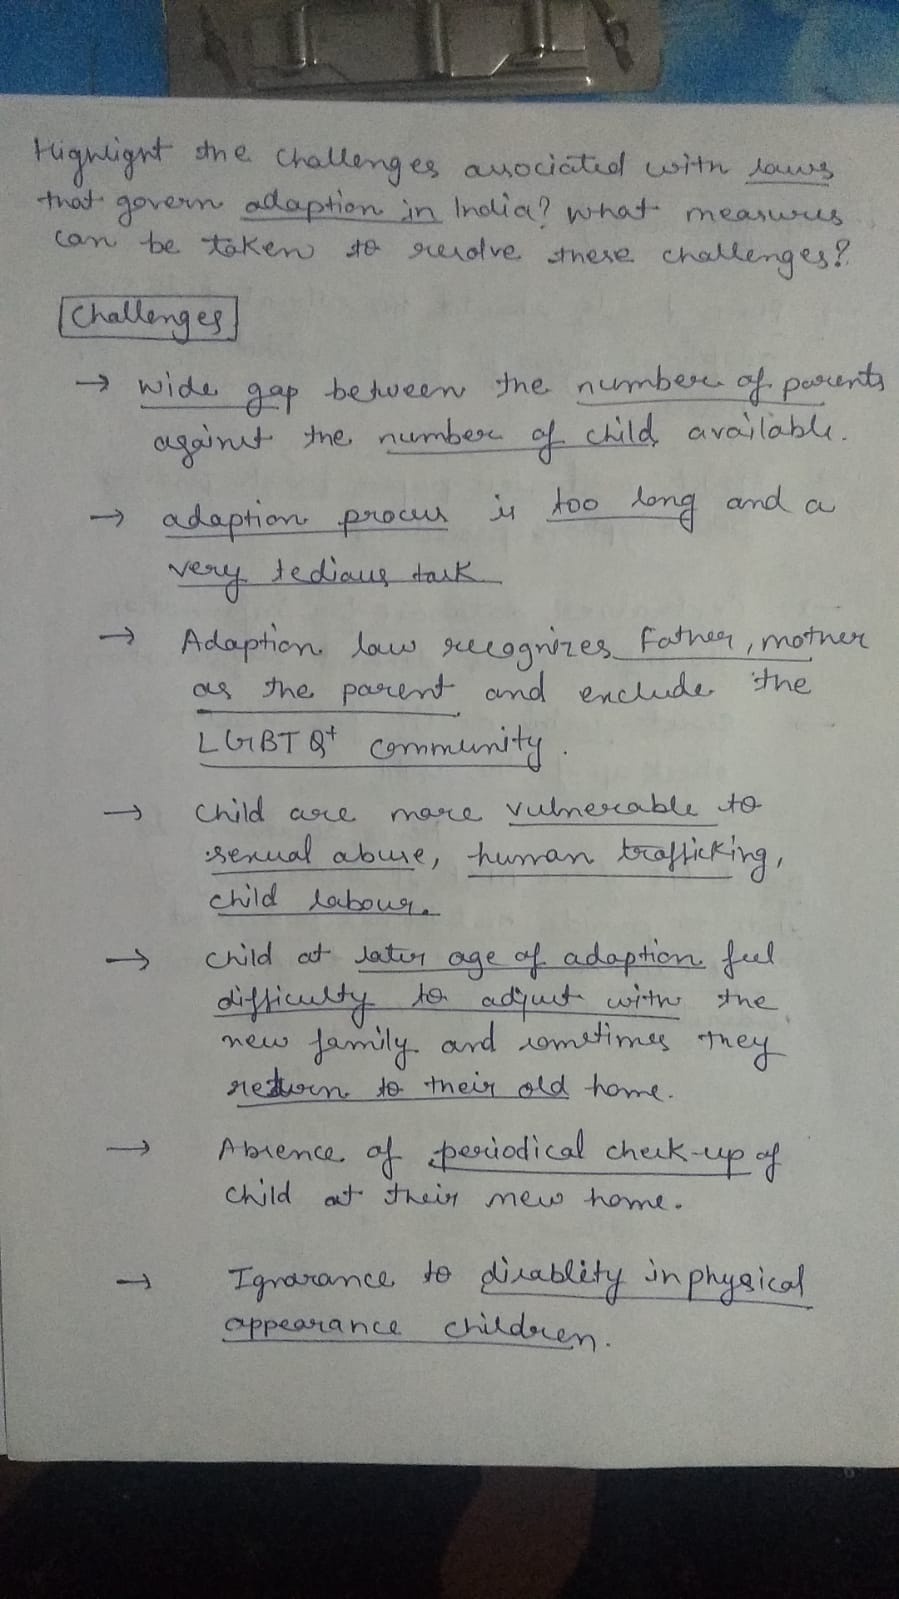 Highlight the challenges associated with laws
that govern adaption in India? what measures
can be taken to resolve these challenges?
Challenges
→ wide gap between the number of parents
against the number of child available.
→ adaption process is too long and a
very tedious task
→ Adaption law recognizes Father, mother
as the parent and exclude the
LGBTQ+ community.
→ child are more vulnerable to
sexual abuse, human trafficking,
child labour.
→ child at later age of adaption feel
difficulty to adjust with the
new family and sometimes they
return to their old home.
→ Absence of periodical check-up of
child at their new home.
→ Ignorance to disablity in physical
appearance children.